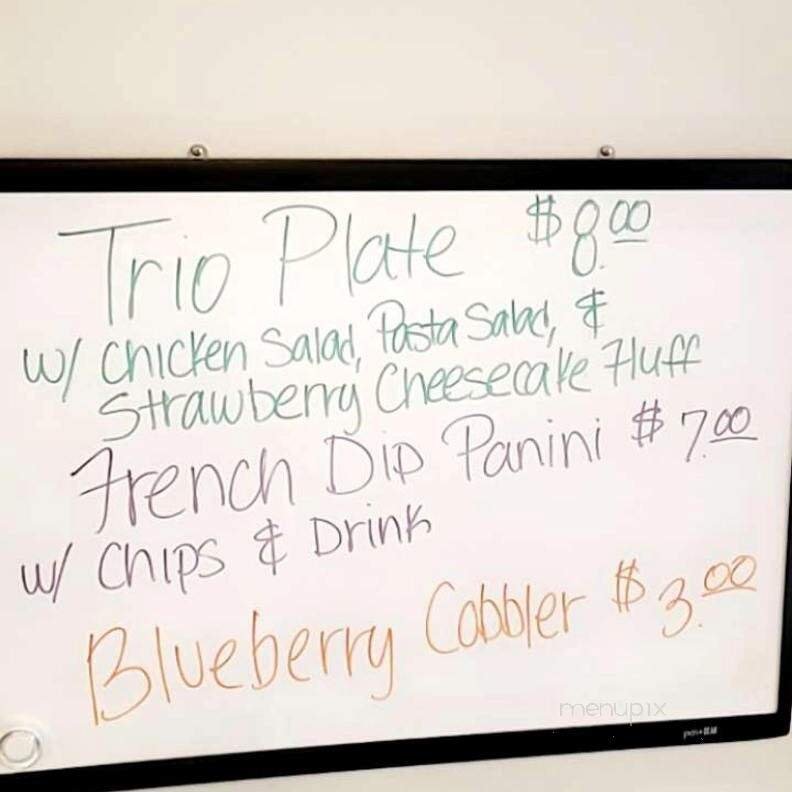 Trio Plate $8.00
w/ Chicken Salad, Pasta Salad, &
Strawberry Cheesecake Fluff
French Dip Panini $7.00
w/ Chips & Drink
Blueberry Cobbler $3.00
menupix